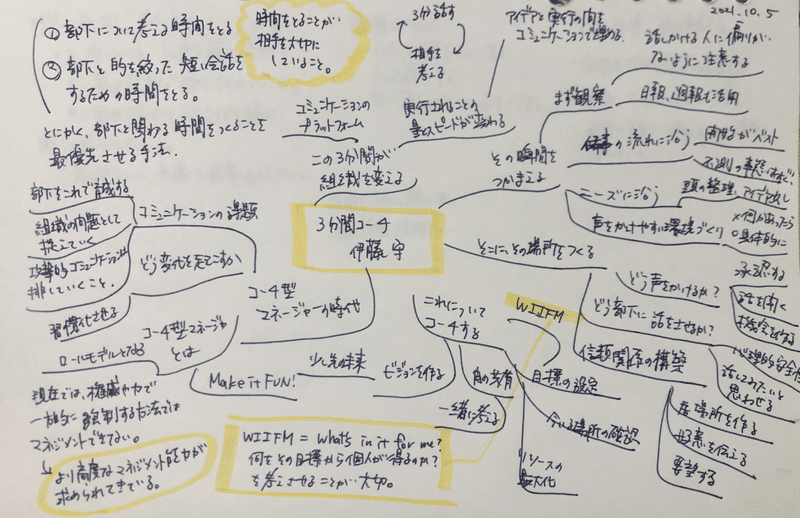 2021.10.5
① 部下について考える時間をとる
② 部下と的を絞った短い会話を
するための時間をとる。
とにかく、部下と関わる時間をつくることを
最優先させる手法。
時間をとることが
相手を大切に
していること。
3分話す
相手を
考える
アイデアと実行の間を
コミュニケーションで埋める。
コミュニケーションの
プラットフォーム
実行されることの
量とスピードが変わる
この3分間が
組織を変える
3分間コーチ
伊藤守
その瞬間を
つかまえる
まず観察
話しかける人に偏りが
ないように注意する
日報、週報も活用
仕事の流れに沿う
目的がベスト
不測の事態
ニーズに沿う
頭の整理、アイデア出し
声をかけやすい環境づくり
×何かあったら
○具体的に
そこに、その場所をつくる
どう声をかけるか?
承認する
どう部下に話をさせるか?
話を聞く
機会を作る
信頼関係の構築
心理的安全性
話してみたいと
思わせる
居場所を作る
好意を伝える
要望する
これについて
コーチする
WIIFM
目標の設定
今いる場所の確認
リソースの
最大化
ビジョンを作る
少し先の未来
Make it FUN!
一緒に考える
WIIFM = What's in it for me?
何をその目標から個人が得るのか?
を考えさせることが大切。
コーチ型
マネージャーの時代
コミュニケーションの課題
部下をこれで育成する
組織の問題として
捉えていく
攻撃的コミュニケーションは
排していくこと。
どう変化を起こすか
習慣化させる
コーチ型マネージャ
とは
ロールモデルとなる
現在では、権威や力で
一方的に強制する方法では
マネジメントできない。
より高度なマネジメント能力が
求められてきている。